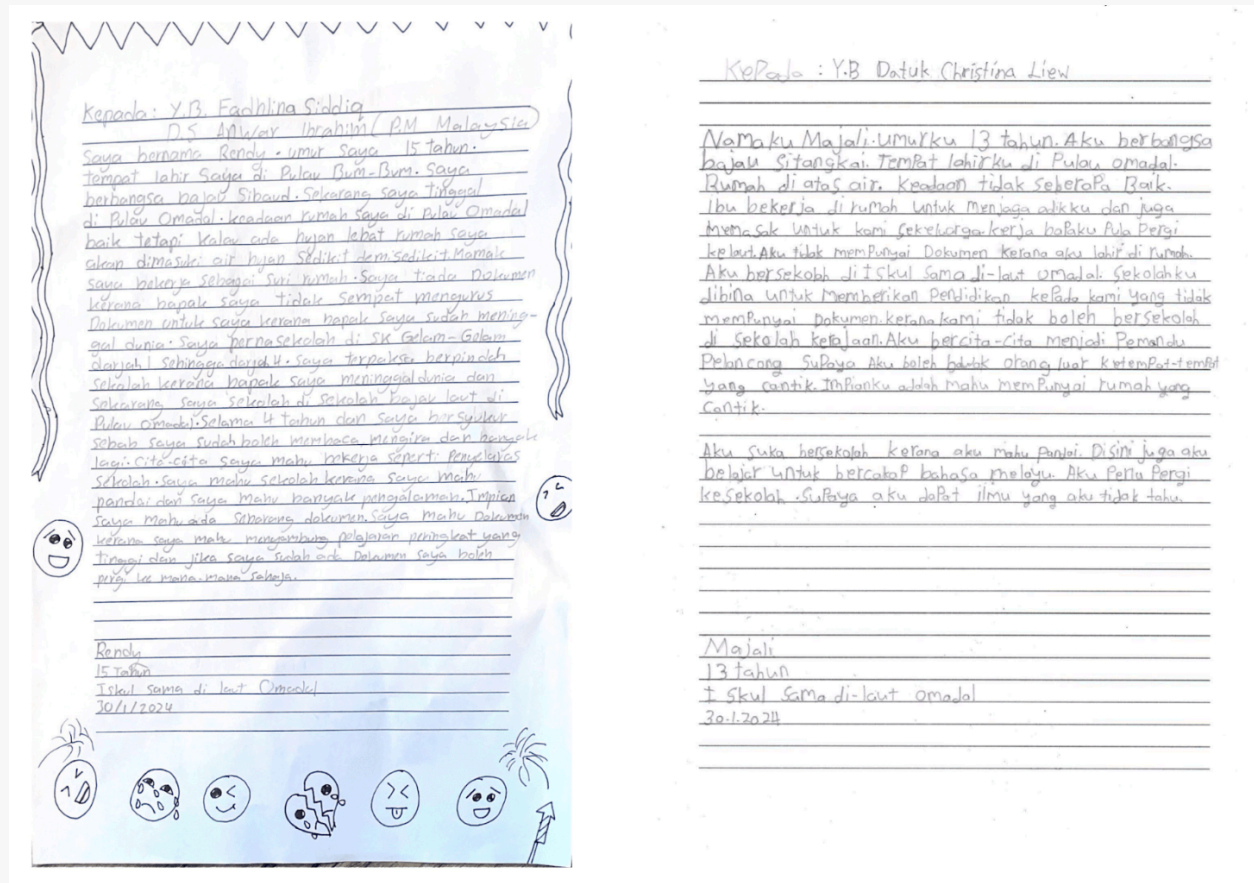 Kepada: Y.B. Fadhlina Siddiq
D.S Anwar Ibrahim (P.M Malaysia)
Saya bernama Rendy. umur saya 15 tahun.
tempat lahir saya di Pulau Bum-Bum. Saya
berbangsa bajau Sibaud. Sekarang saya tinggal
di Pulau Omadal. keadaan rumah saya di Pulau Omadal
baik tetapi kalau ada hujan lebat rumah saya
akan dimasuki air hujan sedikit demi sedikit. Mamak
saya bekerja sebagai suri rumah. Saya tiada Dokumen
kerana bapak saya tidak sempat mengurus
Dokumen untuk saya kerana bapak saya sudah mening-
gal dunia. Saya pernasekolah di SK Gelam-Gelam
darjah 1 sehingga darjah 4. Saya terpaksa berpindah
sekolah kerana bapak saya meninggal dunia dan
Sekarang saya sekolah di sekolah bajau laut di
Pulau Omadal. Selama 4 tahun dan saya bersyukur
sebab saya sudah boleh membaca, mengira dan banyak
lagi. Cita-cita saya mahu bekerja seperti Penyelaras
sekolah. Saya mahu sekolah kerana saya mahu
pandai dan saya mahu banyak pengalaman. Impian
saya mahu ada seborang dokumen. Saya mahu Dokumen
kerana saya mahu menyambung pelajaran peringkat yang
tinggi dan jika saya sudah ada Dokumen saya boleh
pergi ke mana-mana sahaja.
Rendy
15 Tahun
Iskul sama di laut Omadal
30/1/2024
KePada : Y.B Datuk Christina Liew
Namaku Majali. Umurku 13 tahun. Aku berbangsa
bajau Sitangkai. Tempat lahirku di Pulau omadal.
Rumah di atas air. keadaan tidak seberapa Baik.
Ibu bekerja di rumah untuk menjaga adikku dan juga
memasak untuk kami sekeluarga. kerja bapaku Pula Pergi
kelaut. Aku tidak memPunyai Dokumen kerana aku lahir di rumah.
Aku bersekolah di Iskul Sama di-laut omadal. Sekolahku
dibina untuk memberikan Pendidikan kePada kami yang tidak
memPunyai Dokumen. kerana kami tidak boleh bersekolah
di sekolah kerajaan. Aku bercita-cita menjadi Pemandu
Pelancong supaya Aku boleh orang luar ketemPat-temPat
yang cantik. ImPianku adalah mahu memPunyai rumah yang
Cantik.
Aku suka bersekolah kerana aku mahu Pandai. Disini juga aku
belajar untuk bercakap bahasa melayu. Aku Perlu Pergi
kesekolah. Supaya aku dapat ilmu yang aku tidak tahu.
Majali
13 tahun
I Skul Sama di-laut omadal
30.1.2024